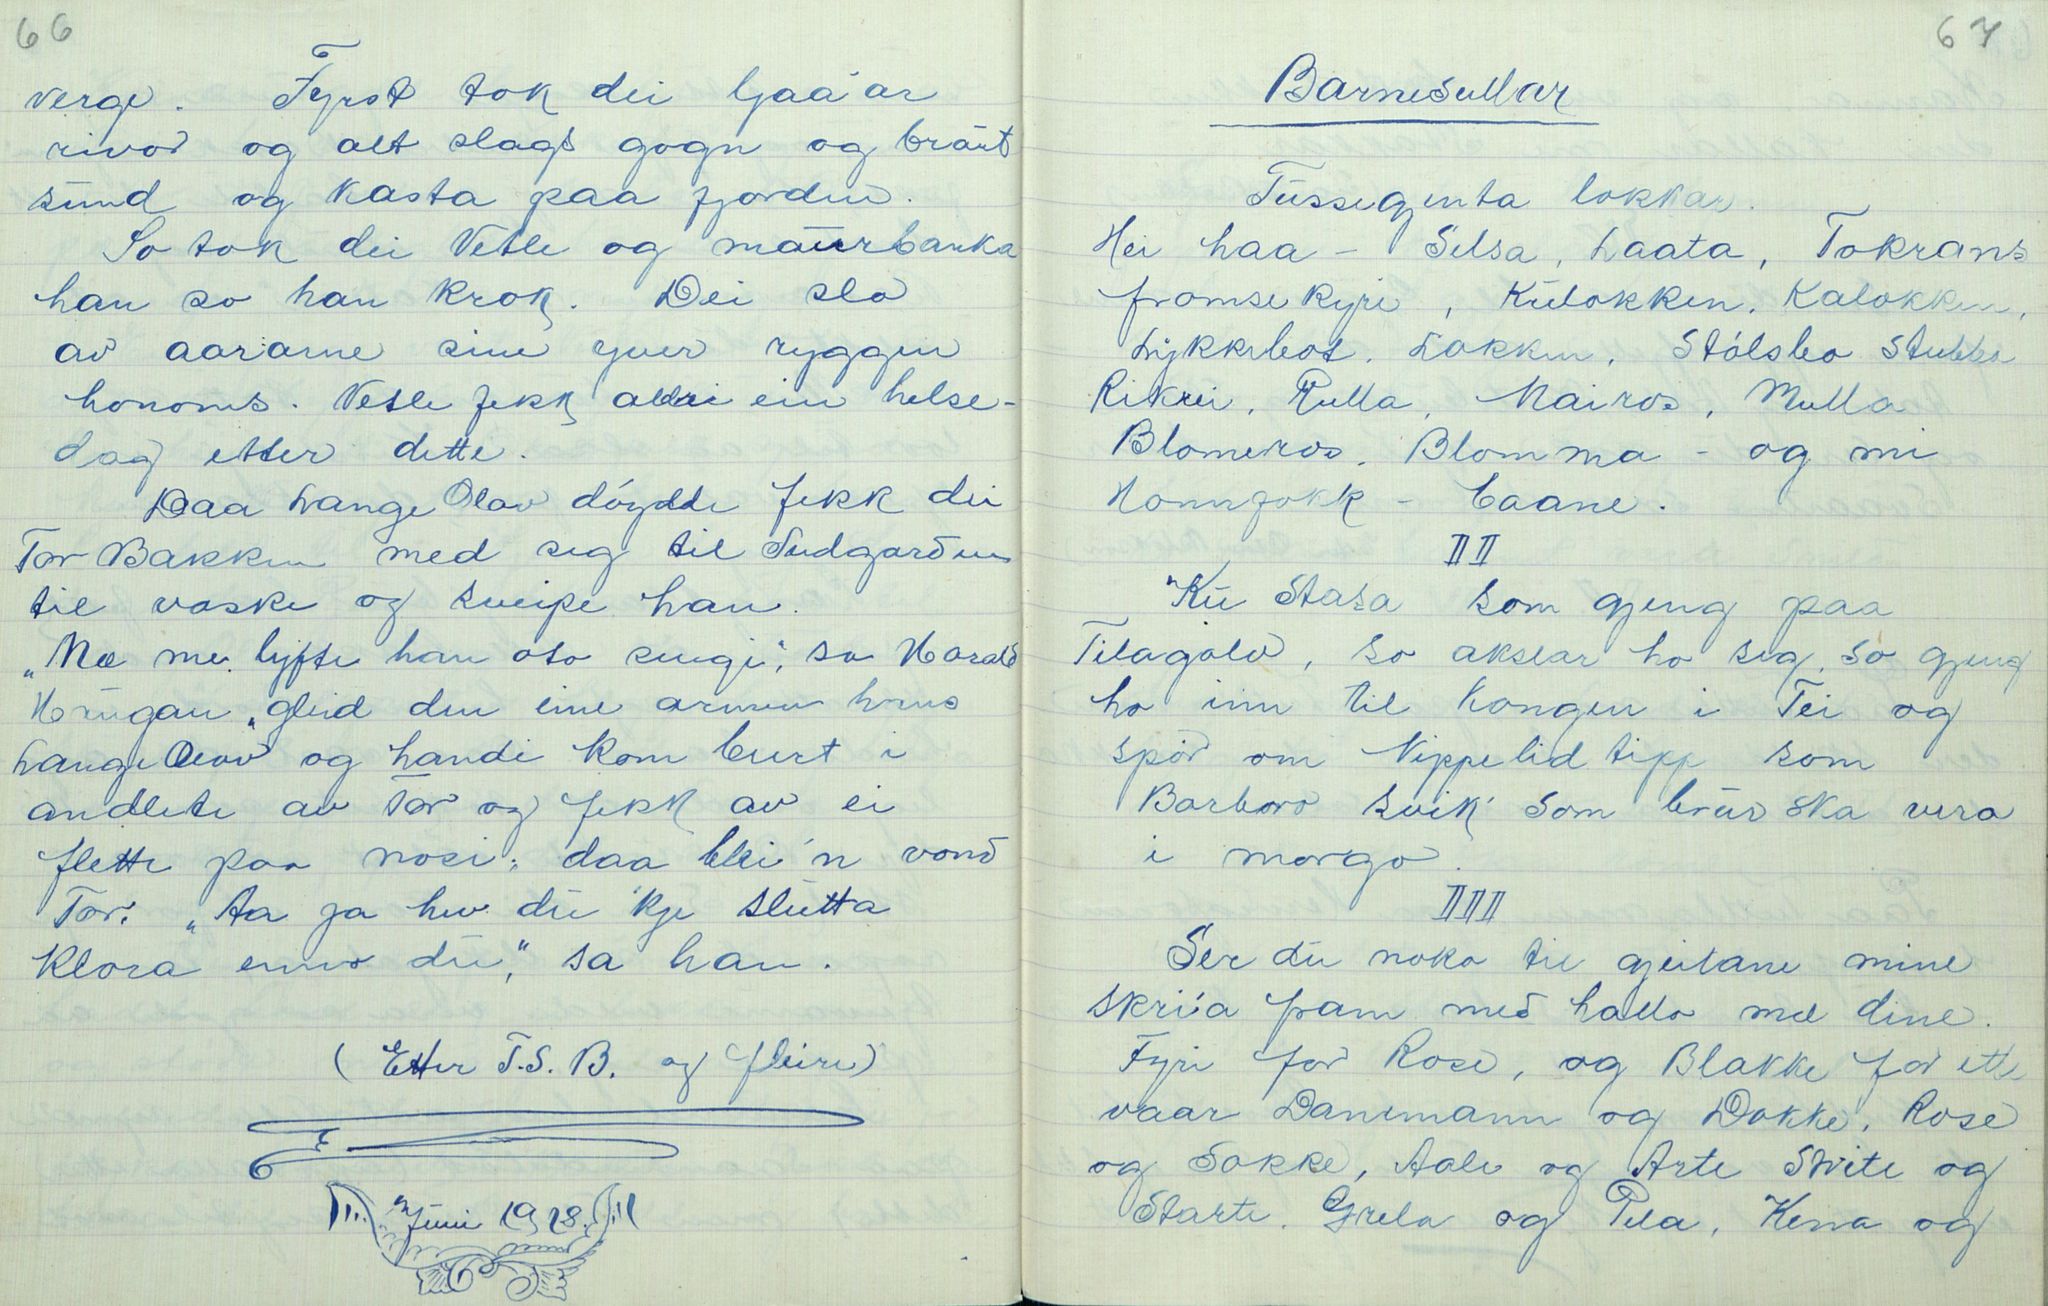 66
verge. Fyrst tok dei ljaa'ar
rivor og alt slags gogn og braut
sund og kasta paa fjorden.
So tok dei Vetle og maurbanka
han so han krok. Dei slo
av aararne sine yver ryggen
honoms. Vetle fekk aldri ein helse-
dag etter dette.
Daa Lange Olav döydde fekk dei
Tor Bakken med seg til Sudgarden
til vaske og sveipe han.
„Mæ me lyfte han oto sengi", sa Harald
"gleid den eine armen hans
Lange Olav og handi kom burt i
andlete av Tor og fekk av ei
flette paa nosi; daa blei'n vond
Tor: „Aa ja hev du 'kje slutta
klora enno du," sa han.
(Etter T.S.B. og fleire)
Juni 1928.
67
Barnesullar
Tussegjenta lokkar.
Hei haa - Selsa, Laata, Tokrans
fromsekyri, Kulokken, Kalokken,
Lykkebot, Lokken, Stölsbo Stubbe
Rikrei, Rulla, Mairos, Mulla
Blomeros, Blomma - og mi
Hornfokk - baane.
II
"Ku Stasa som gjeng paa
Tilagolv, so akslar ho seg, so gjeng
ho inn til kongen i Tei og
spör om Nippelid tipp som
Barbaro svik' som brur ska vera
i morgo.
III
Ser du noko til gjeitane mine
skri'a fram med hallo mæ dine.
Fyri for Rose, og Blakke for ette
vaar Danemann og Dokke, Rose
og Sokke, Aale og Arte Svite og
Starte, Grela og Pela, Kena og